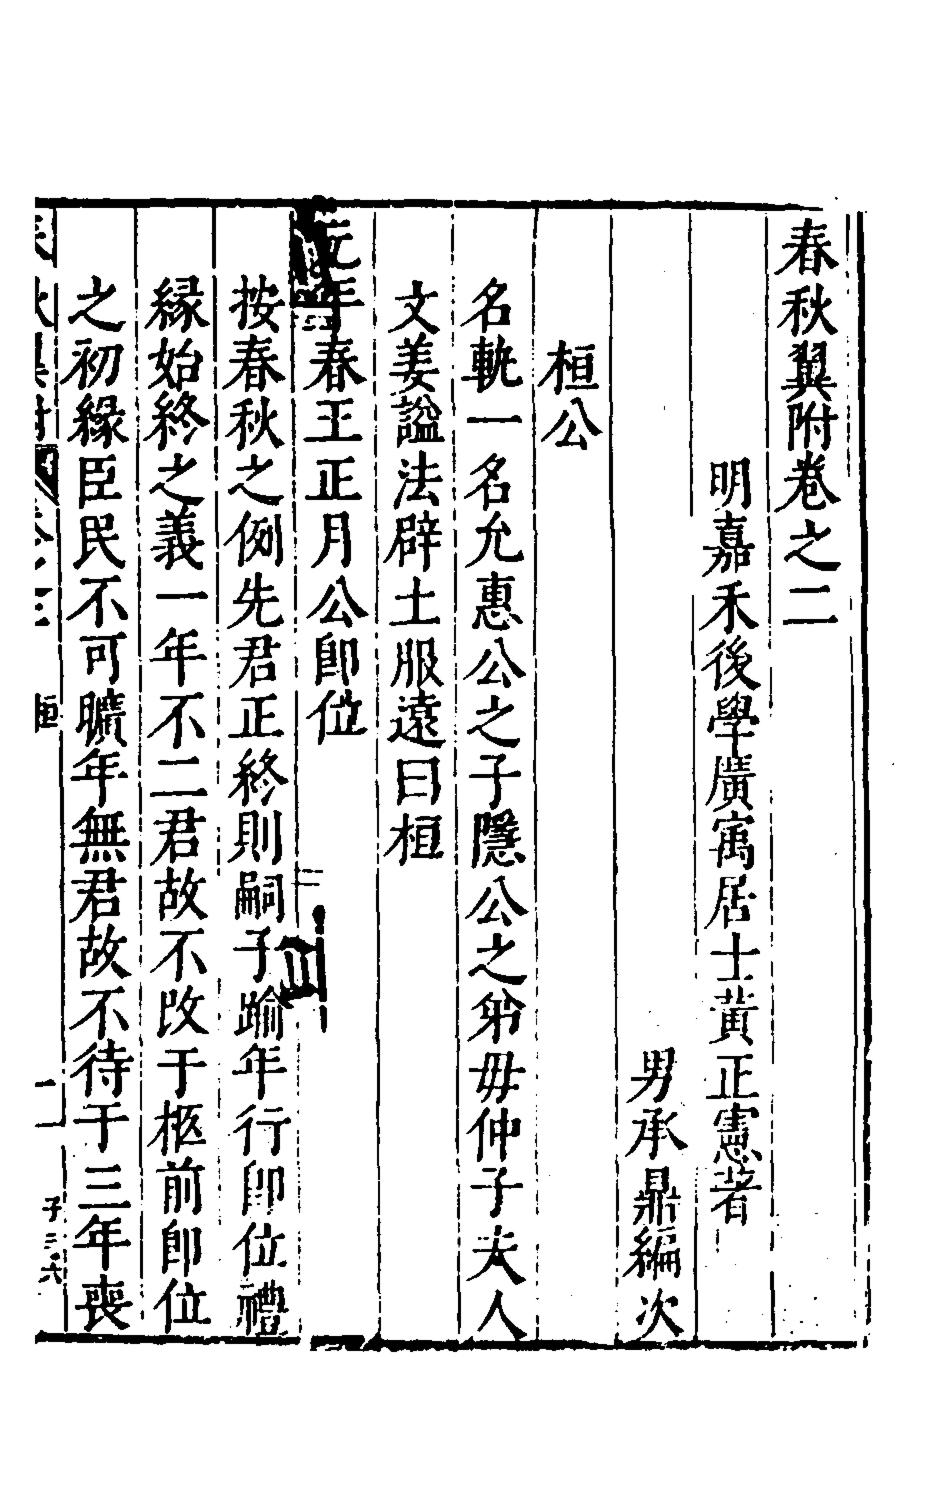 春秋翼附卷之二
明嘉禾後學廣寓居士黃正憲著
男承鼎編次
桓公
名軌一名允惠公之子隱公之弟毋仲子夫人
文姜謚法辟土服遠曰桓
元年春王正月公即位
按春秋之例先君正終則嗣子踰年行即位禮
緣始終之義一年不二君故不改于柩前即位
之初緣臣民不可曠年無君故不待于三年喪